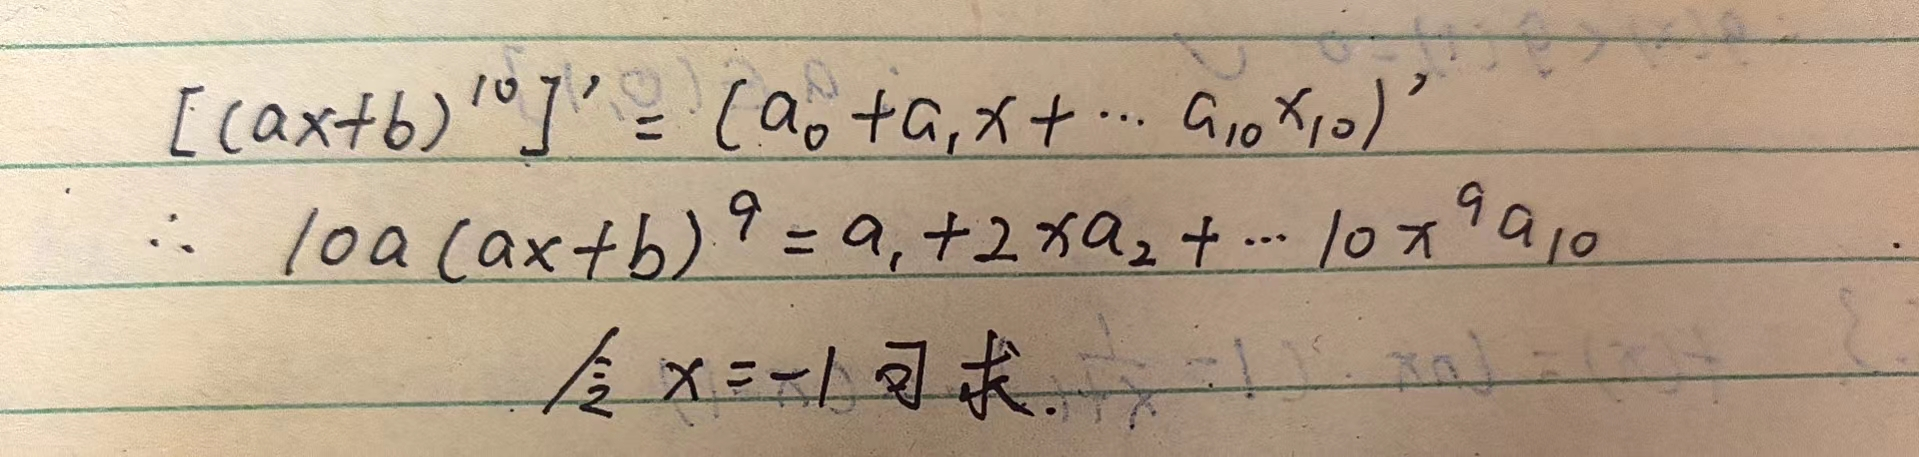 [(ax+b)¹⁰]' = (a₀+a₁x+… a₁₀x₁₀)'
∴ 10a(ax+b)⁹ = a₁+2xa₂+…10x⁹a₁₀
令 x=-1 可求.